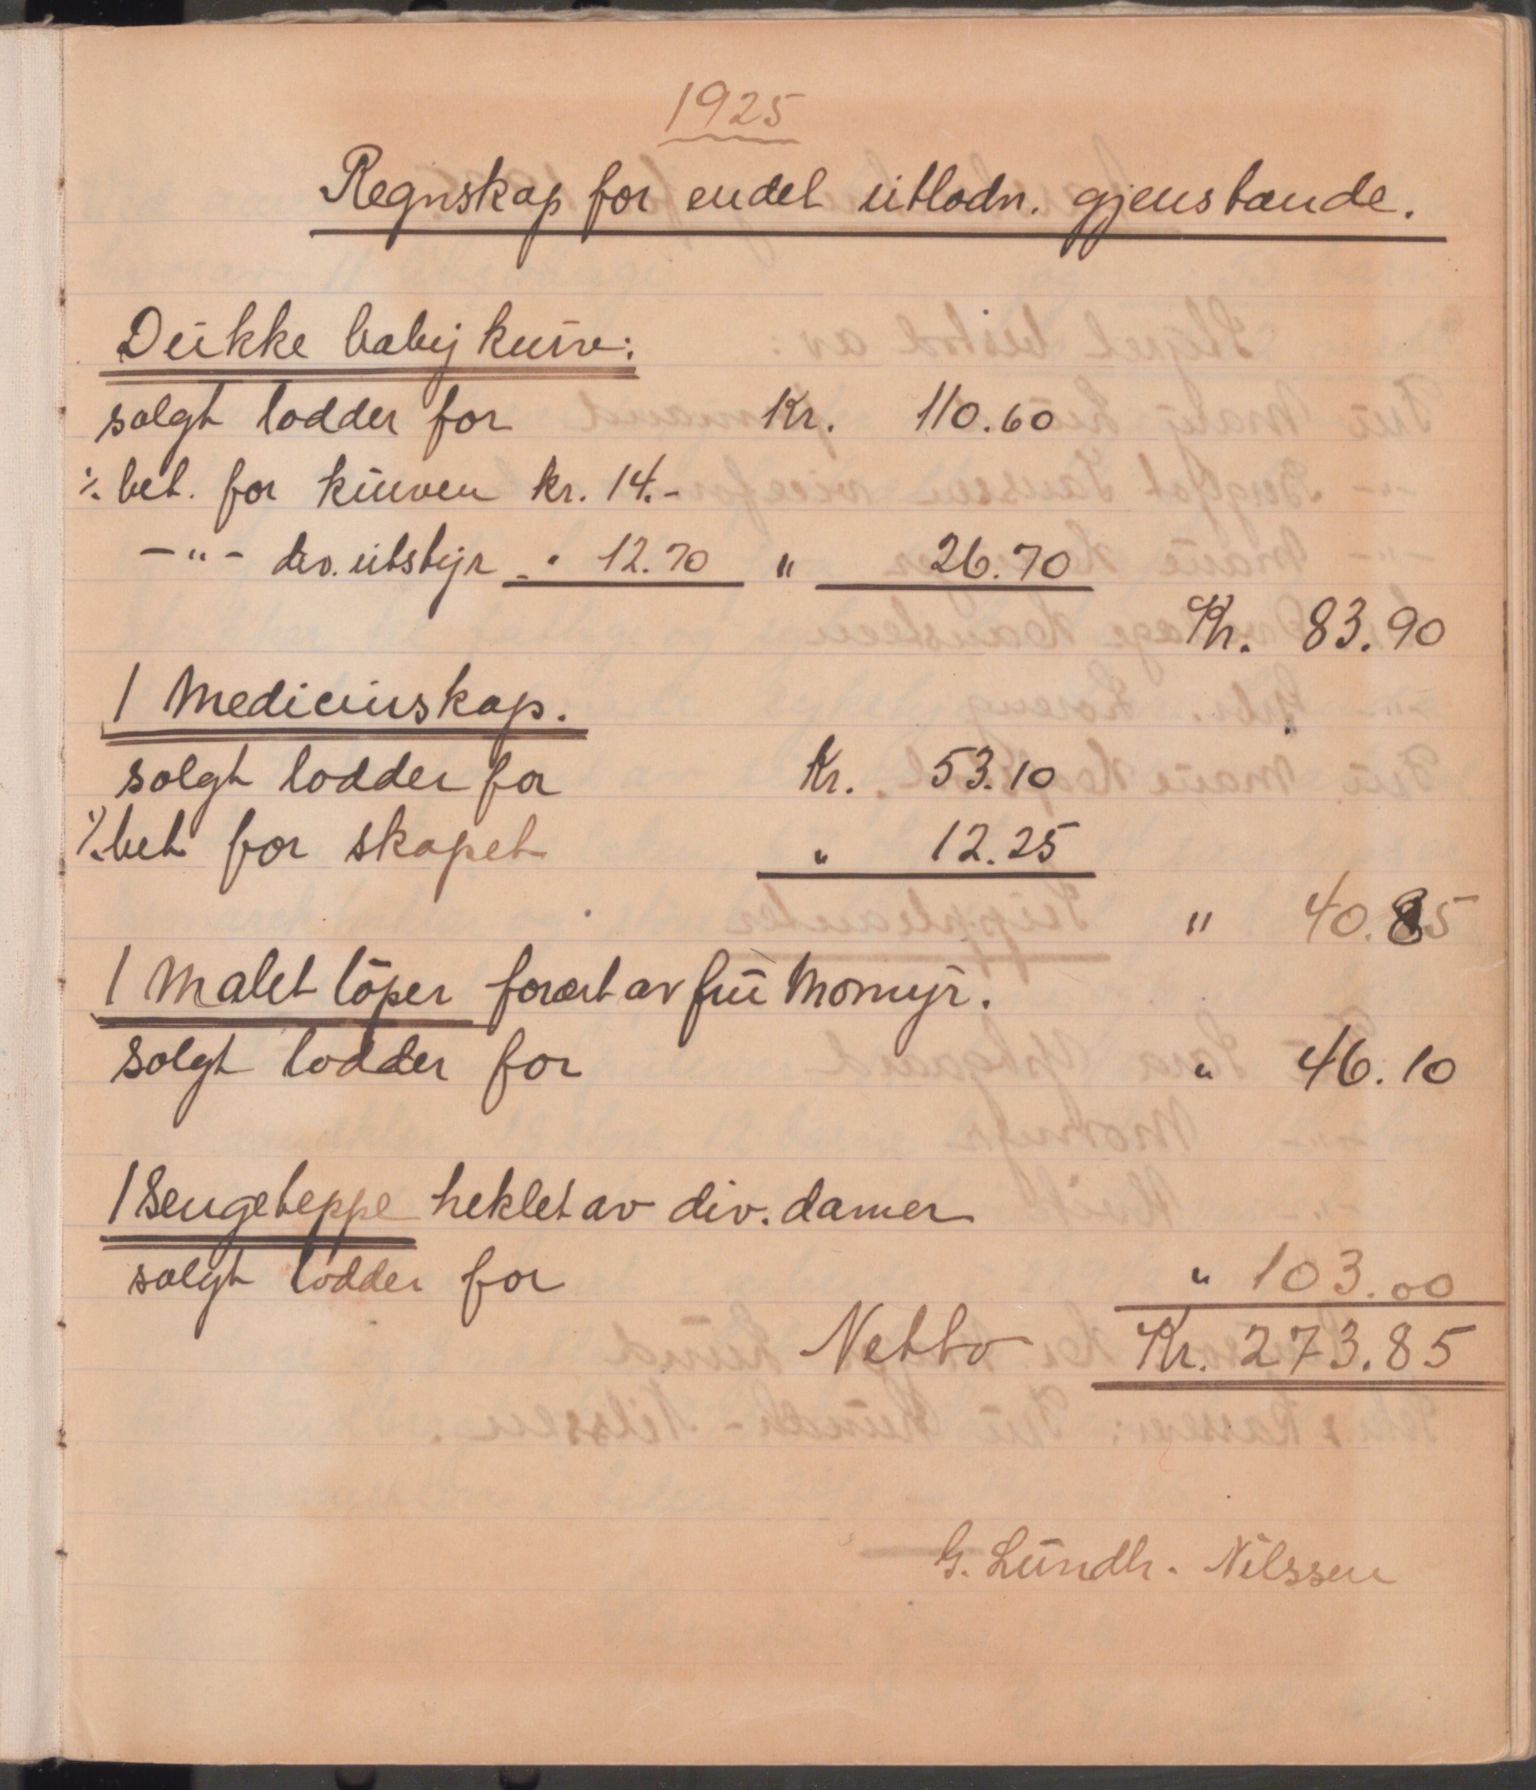 1925
Regnskap for endel utlodn. gjenstande.
Dukke baby kurv:
solgt lodder for Kr. 110.60
÷ bet. for kurven kr. 14.-
-"- div. utstyr " 12.70 " 26.70
Kr. 83.90
1 Medicinskap.
solgt lodder for Kr. 53.10
÷ bet for skapet " 12.25
" 40.85
1 Malet löper forært av fru Momyr.
Solgt lodder for " 46.10
1 Sengeteppe heklet av div. damer
solgt lodder for " 103.00
Netto Kr. 273.85
G. Lundh. Nilssen